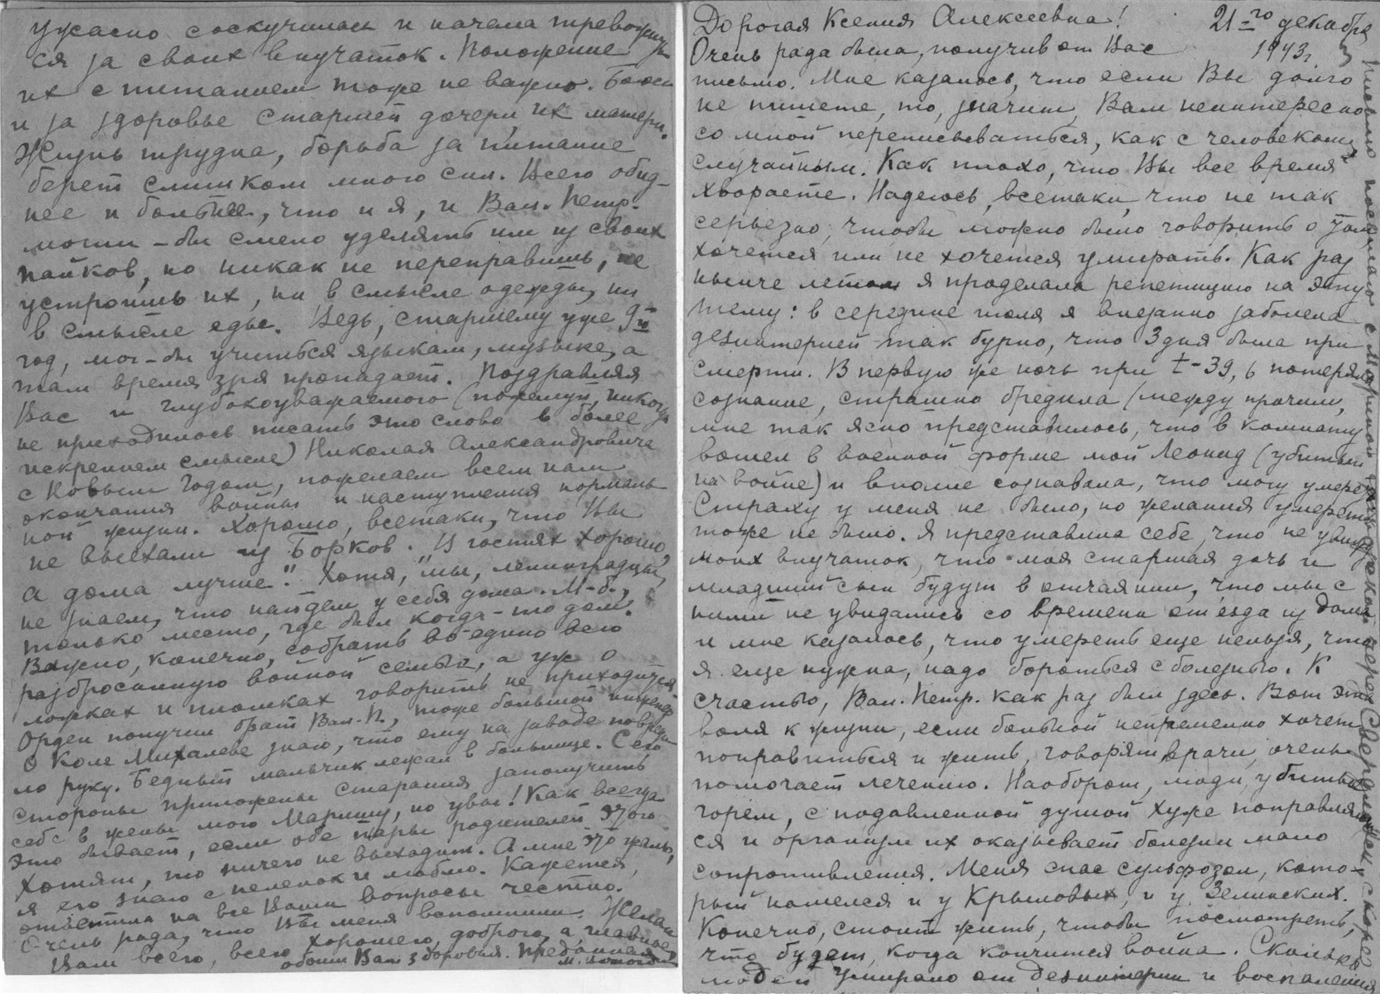 Дорогая Ксения Алексеевна! 21-го декабря
1943 г.
Очень рада была, получив от Вас
письмо. Мне казалось, что если Вы долго
не пишете, то, значит, Вам неинтересно
со мной переписываться, как с человеком
случайным. Как плохо, что Вы все время
хвораете. Надеюсь, всетаки, что не так
серьезно, чтобы можно было говорить о том
хочется или не хочется умирать. Как раз
нынче летом я проделала репетицию на эту
тему: в середине июля я внезапно заболела
дезинтерией так бурно, что 3 дня была при
смерти. В первую же ночь при t-39,6 потеряла
сознание, страшно бредила (между прочим,
мне так ясно представилось, что в комнату
вошел в военной форме мой Леонид (убитый
на войне) и вполне сознавала, что могу умереть
Страху у меня не было, но желания умереть
тоже не было. Я представила себе, что не увижу
моих внучаток, что моя старшая дочь и
младший сын будут в отчаянии, что мы с
ними не увидались со времени отъезда из дома
и мне казалось, что умереть еще нельзя, что
я еще нужна, надо бороться с болезнью. К
счастью, Вал. Петр. как раз был здесь. Вот эта
воля к жизни, если больной непременно хочет
поправиться и жить, говорят врачи, очень
помогает лечению. Наоборот, люди, убитые
горем, с подавленной душой хуже поправляют
ся и организм их оказывает болезни мало
сопротивления. Меня спас сульфозол, кото-
рый нашелся и у Крыловых, и у Зелинских.
Конечно, стоит жить, чтобы посмотреть,
что будет, когда кончится война. Сколько
людей умирало от дезинтерии и воспаления
Письмо посылаю с Мариной через Свердловск, скорее
ужасно соскучилась и начала тревожить
ся за своих внучаток. Положение
их с питанием тоже не важно. Боюсь
и за здоровье старшей дочери, их матери.
Жизнь трудна, борьба за питание
берет слишком много сил. Всего обид-
нее и больнее, что и я, и Вал. Петр.
могли-бы смело уделять им из своих
пайков, но никак не переправишь, не
устроишь их, ни в смысле одежды, ни
в смысле еды. Ведь, старшему уже 9-й
год, мог-бы учиться языкам, музыке, а
там время зря пропадает. Поздравляя
Вас и глубокоуважаемого (пожалуй, никогда
не приходилось писать это слово в более
искреннем смысле) Николая Александровича
с Новым Годом, пожелаем всем нам
окончания войны и наступления нормаль
ной жизни. Хорошо, всетаки, что Вы
не выехали из Борков. "В гостях хорошо,
а дома лучше." Хотя, "мы, ленинградцы,
не знаем, что найдем у себя дома. М-б.,
только место, где был когда-то дом.
Важно, конечно, собрать во-едино всю
разбросанную войной семью, а уж о
ложках и плошках говорить не приходится.
Орден получил брат Вал. П., тоже большой инженер
О Коле Михалеве знаю, что ему на заводе повреди
ло руку. Бедный мальчик лежал в больнице. С его
стороны приложены старания заполучить
себе в жены мою Марину, но увы! Как всегда
это бывает, если обе пары родителей этого
хотят, то ничего не выходит. А мне это жаль,
я его знаю с пеленок и люблю. Кажется,
ответила на все Ваши вопросы честно.
Очень рада, что Вы меня вспомнили. Желаю
Вам всего, всего хорошего, доброго, а главное
обоим Вам здоровья. Преданная